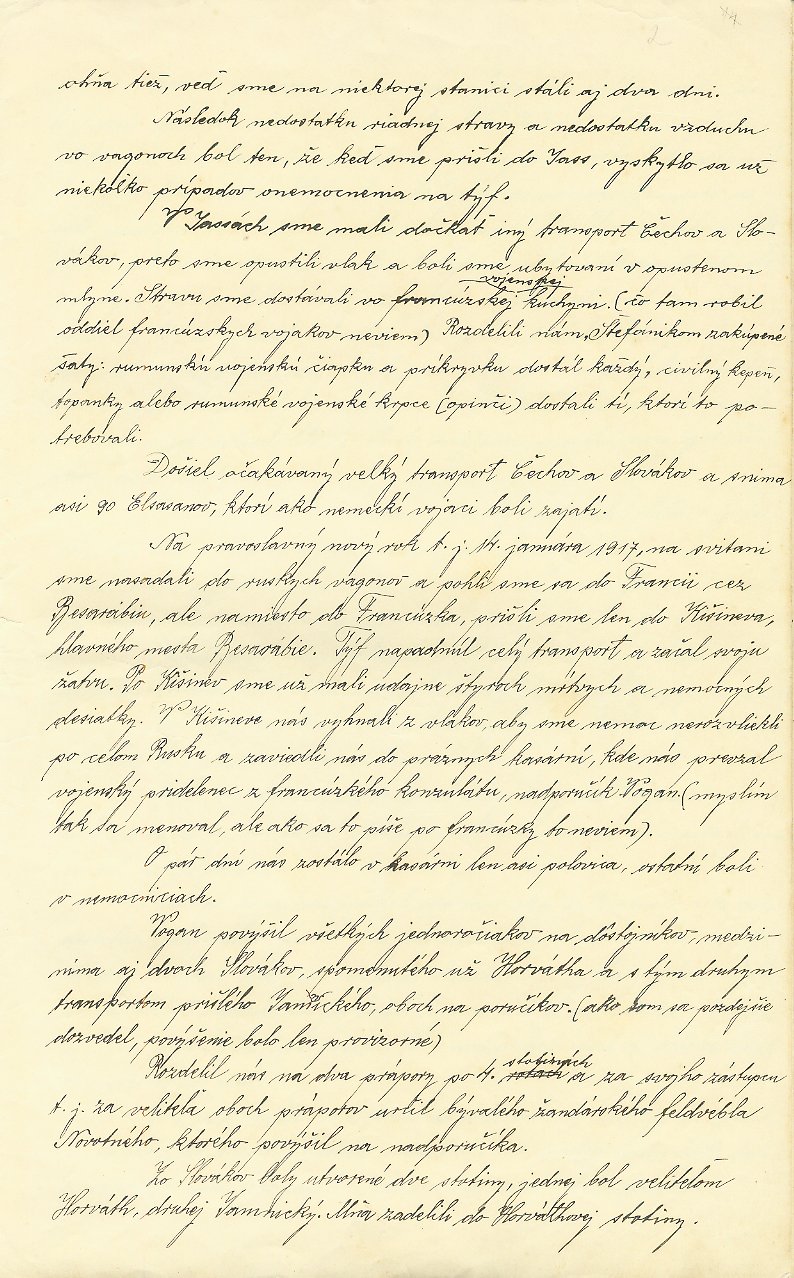 2
ohňa tiež, veď sme na niektorej stanici stáli aj dva dni.
Následok nedostatku riadnej stravy a nedostatku vzduchu
vo vagonoch bol ten, že keď sme prišli do Jass, vyskytlo sa už
niekoľko prípadov onemocnenia na týf.
V Jassách sme mali dočkať iný transport Čechov a Slo-
vákov, preto sme opustili vlak a boli sme ubytovaní v opustenom
vojenskej
mlyne. Stravu sme dostávali vo francúzskej kuchyni. (čo tam robil
oddiel francúzskych vojakov neviem) Rozdelili nám, Štefánikom zakúpené
šaty: rumunskú vojenskú čiapku a príkryvku dostál každý, civilný kepeň,
topanky alebo rumunské vojenské krpce (opinči) dostali tí, ktorí to po-
trebovali.
Došiel očakávaný velký transport Čechov a Slovákov a snima
asi 90 Elsasanov, ktorí ako nemeckí vojaci boli zajatí.
Na pravoslavný nový rok t. j. 14. januára 1917, na svitani
sme nasadali do ruskych vagonov a pohli sme sa do Francii cez
Besarábiu, ale namiesto do Francúzka, prišli sme len do Kišineva,
hlavného mesta Besarábie. Týf napadnúl celý transport a začal svoju
žatvu. Po Kišinev sme už mali udajne štyroch mŕtvych a nemocných
desiatky. V Kišineve nás vyhnali z vlakov, aby sme nemoc nerozvliekli
po celom Rusku a zaviedli nás do práznych kasární, kde nás prevzal
vojenský pridelenec z francúzkého konzulátu, nadporučík Vogan (myslím
tak sa menoval, ale ako sa to píše po francúzky to neviem).
O pár dní nás zostálo v kasárni len asi polovica, ostatní boli
v nemocniciach.
Vogan povýšil všetkých jednoročiakov na dôstojníkov, medzi-
nima aj dvoch Slovákov, spomenutého už Horvátha a s tým druhym
transportom prišlého Jamnického, oboch na poručíkov. (ako som sa pozdejšie
dozvedel, povýšenie bolo len provizorné)
stotinách
Rozdelil nás na dva prápory po 4. rotách a za svojho zástupcu
t. j. za veliteľa oboch práporov určil bývalého žandárského feldvébla
Novotného, ktorého povýšil na nadporučíka.
Zo Slovákov boly utvorené dve stotiny, jednej bol veliteľom
Horváth, druhej Jamnický. Mňa zadelili do Horváthovej stotiny.